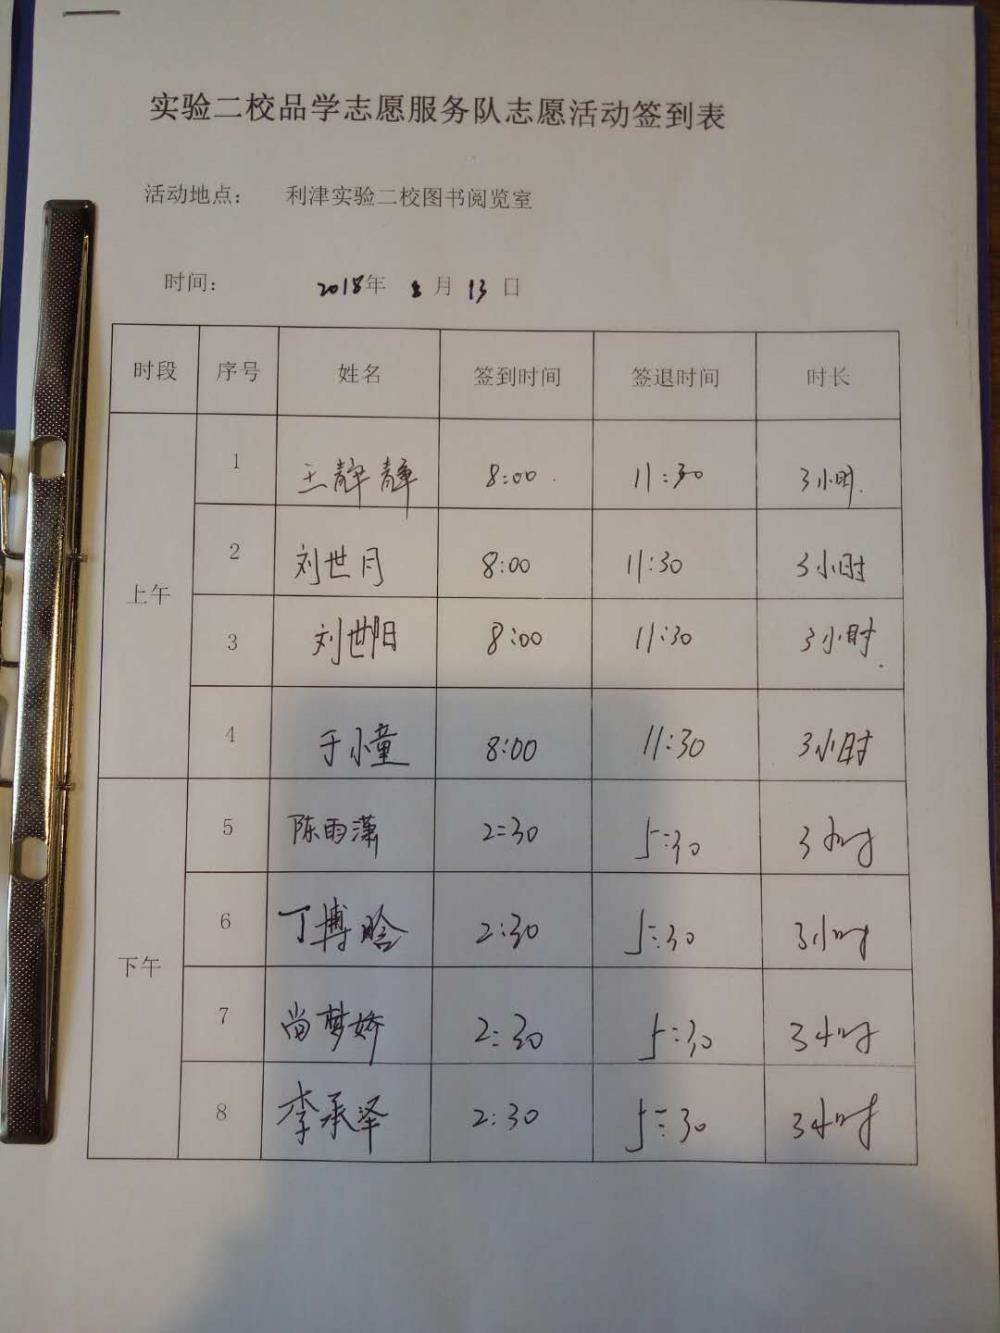 实验二校品学志愿服务队志愿活动签到表
活动地点： 利津实验二校图书阅览室
时间： 2018年 8月 13日
时段 序号 姓名 签到时间 签退时间 时长
上午
1 王静静 8:00 11:30 3小时
2 刘世月 8:00 11:30 3小时
3 刘世阳 8:00 11:30 3小时
4 于小童 8:00 11:30 3小时
下午
5 陈雨潇 2:30 5:30 3小时
6 丁博晗 2:30 5:30 3小时
7 尚梦娇 2:30 5:30 3小时
8 李承泽 2:30 5:30 3小时